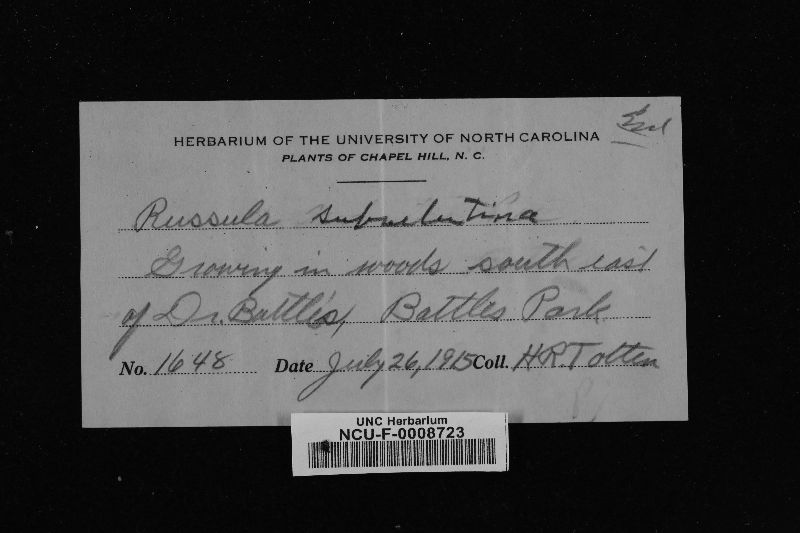 HERBARIUM OF THE UNIVERSITY OF NORTH CAROLINA
PLANTS OF CHAPEL HILL, N. C.
Russula subvelutina
Growing in woods south east
of Dr. Battle's, Battles Park
No. 1648 Date July 26, 1915 Coll. H.R. Totten
UNC Herbarium
NCU-F-0008723